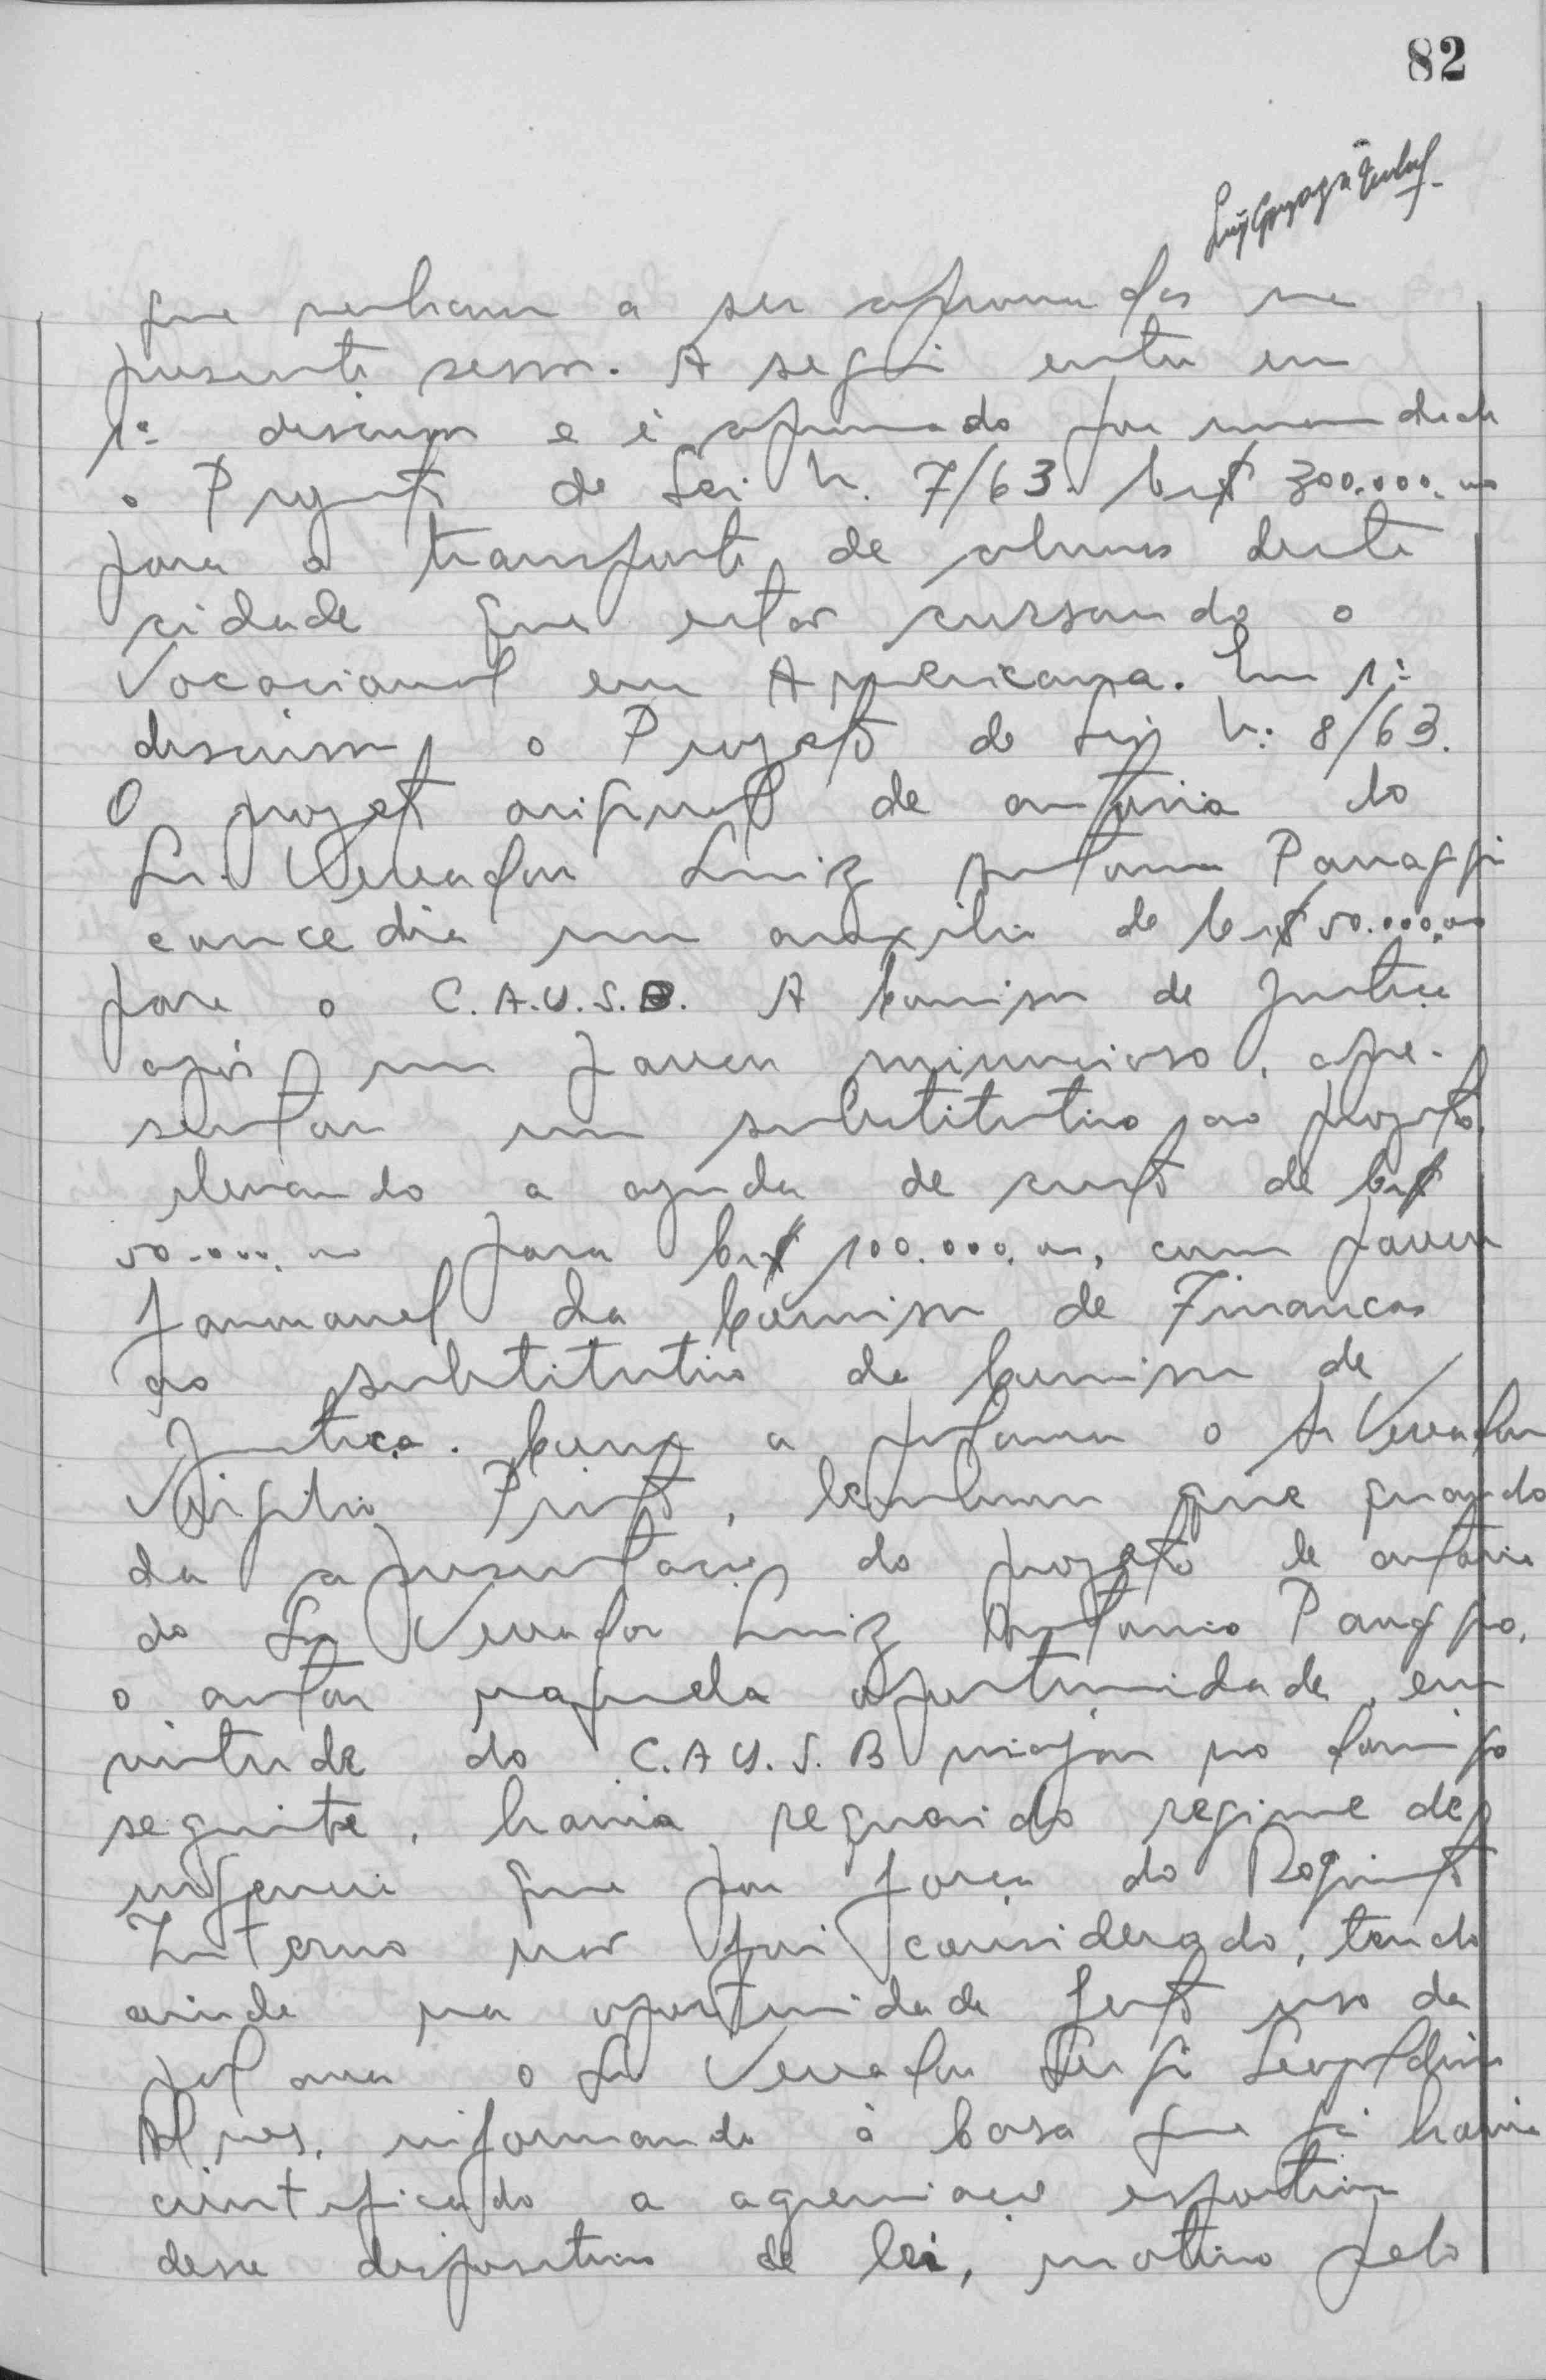 82
que venham a ser aprovados na
presente sessão. A seguir entra em
1ª discussão e é aprovado por unanimidade
o Projeto de Lei n. 7/63. Cr$ 300.000,00
para o transporte de alunos desta
cidade que estão cursando o
Vocacional em Americana. Em 1ª
discussão, o Projeto de Lei nº 8/63.
O projeto original de autoria do
Sr. Vereador Luiz Antonio Panaggio
concedia um auxilio de Cr$ 50.000,00
para o C.A.U.S.B. A Comissão de Justiça
após um parecer minucioso, apre-
sentou um substitutivo ao projeto,
elevando a ajuda de custo de Cr$
50.000,00 para Cr$ 100.000,00, com parecer
favoravel da Comissão de Finanças
ao substitutivo da Comissão de
Justiça. Com a palavra o Sr Vereador
Virgilio Pinto, lembrou que quando
da apresentação do projeto de autoria
do Sr Vereador Luiz Antonio Panaggio,
o autor naquela oportunidade, em
virtude do C.A.U.S.B viajar no domingo
seguinte, havia requerido regime de
urgencia que por força do Regimento
Interno não foi considerado, tendo
ainda na oportunidade feito uso da
palavra o Sr Vereador Sergio Leopoldino
Alves, informando à Casa que já havia
cientificado a agremiação esportiva
desse dispositivo de lei, motivo pelo